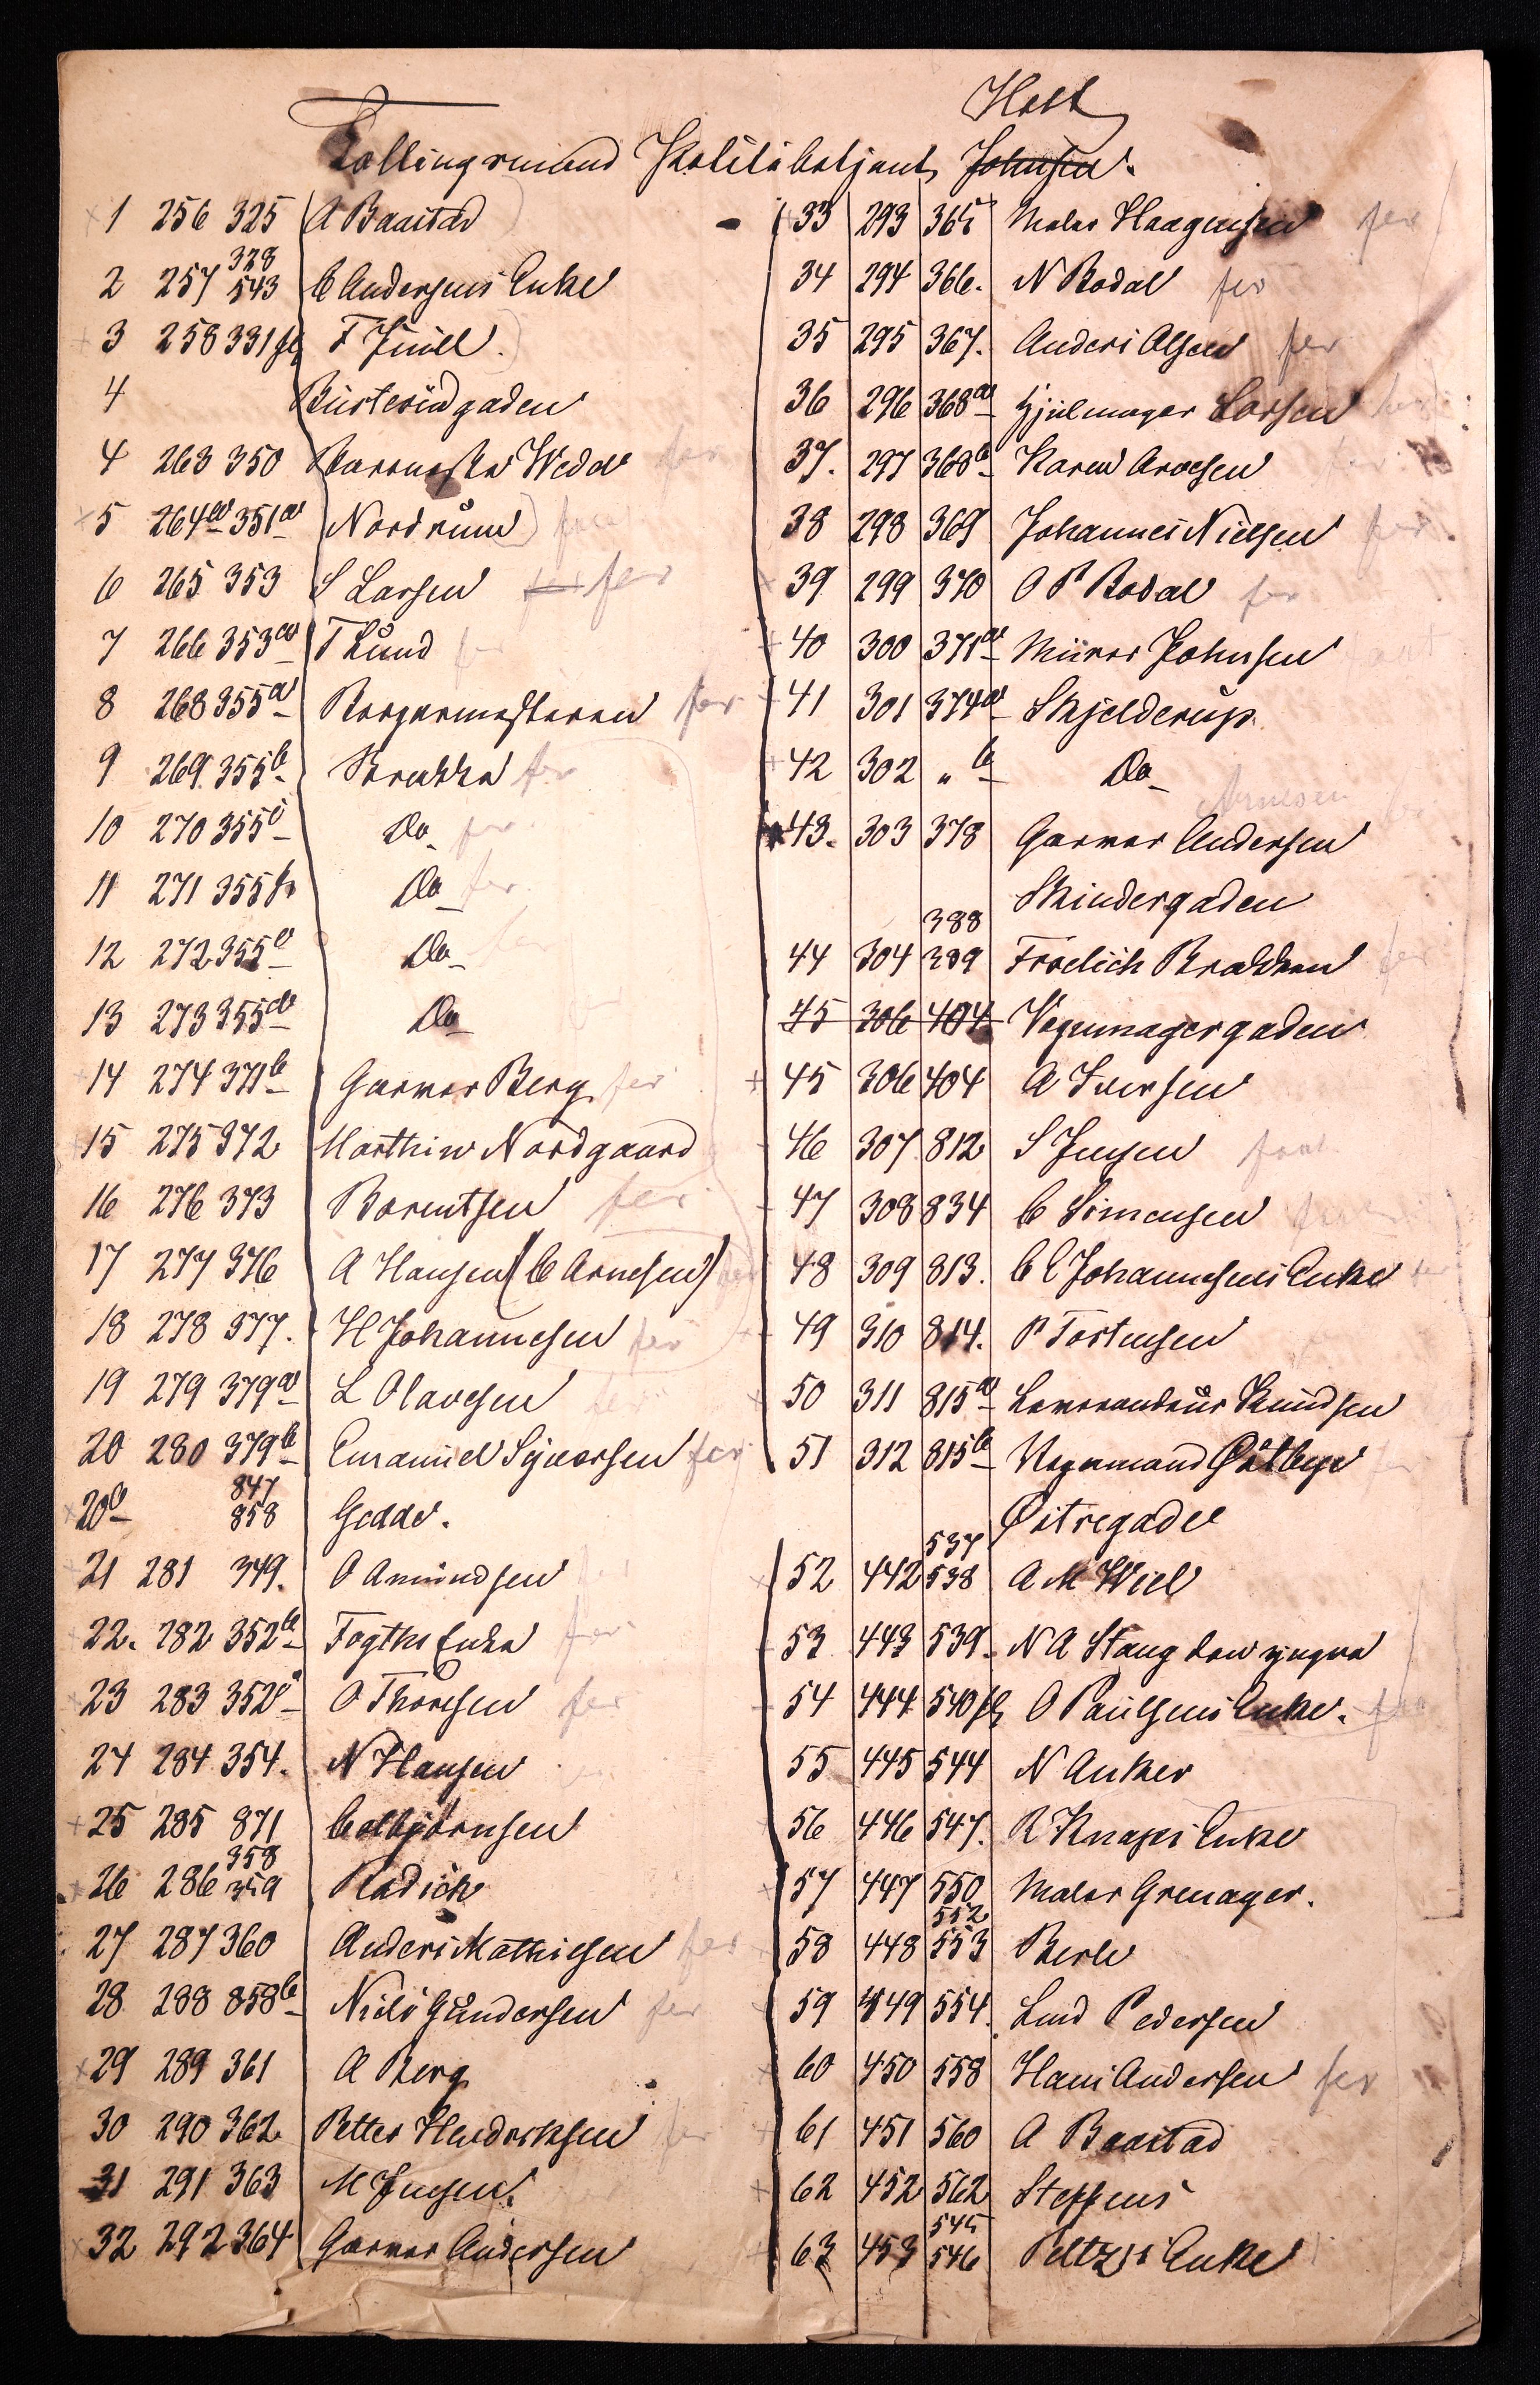 Holt
Tællingsmand Politibetjent Johnsen.
1 256 325 A Baastad
328
2 257 543 C Andersens Enke
3 258 331 F Juell.
4 Bústerudgaden
4 263 350 Wedel
5 264a 351a Nordrum
6 265 353 S Larsen fer
7 266 353a T Lund
8 268 355a Borgermesteren fer
9 269. 355b Brække fer
10 270 355c Do fer
11 271 355f Do fer
12 272 355e Do
13 273 355d Do
14 274 371b Garver Berg fer
15 275 372 Marthin Nordgaard
16 276 373 Berentsen fer
17 277 376 A Hansen (C Arnesen)
18 278 377. H Johannesen fer
19 279 379a L Olavesen
20 280 379b Emanuel Syversen fer
847
20b 858 Gedde.
21 281 349. O Amundsen
22. 282 352b Fogths Enke fer
23 283 352c O Thoresen fer
24 284 354. N Hansen
25 285 871 Colbjørnsen
358
26 286 359 Radich
27 287 360 Anders Mathiesen fer
28 288 858b Niels Gundersen fer
29 289 361 A Berg
30 290 362 Petter Hendriksen fer
31 291 363 M Jensen.
32 292 364 Garver Andersen
33 293 365 Maler Haagensen fer
34 294 366. N Bodal fer
35 295 367. Anders Olsen fer
36 296 368a Hjulmager Larsen
37. 297 368b Karen Arnesen fer
38 298 369 Johannes Nielsen fer
39 299 370 O P Bodal fer
40 300 371a Murer Johnsen
41 301 374a Skjelderup.
42 302 " b Do
Arnesen
43. 303 378 Garver Andersen
Skindergaden
388
44 304 389 Froelich Brækken fer
45 306 404 Vognmagergaden
45 306 404 A Iversen
46 307 812 S Jensen
47 308 834 C Simensen
48 309 813. C C Johannesens Enke
49 310 814. P Tostensen
50 311 815a Leverandeur Knudsen
51 312 815b Vognmand Østbye
Østregade
537
52 442 538 A M Wiel
53 443 539. N A Stang den yngre
54 444 540 O Paulsens Enke.
55 445 544 N Anker
56 446 547. R Knaps Enke
57 447 550 Maler Grenager.
552
58 448 553 Berle
59 449 554. Lind Pedersen
60 450 558 Hans Andersen fer
61 451 560 A Baastad
62 452 562 Steffens
545
63 453 546 Peltzs Enke